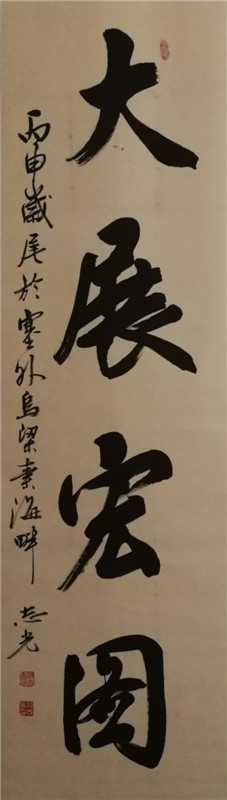 大展宏图
丙申歲尾於塞外烏梁素海畔
志光